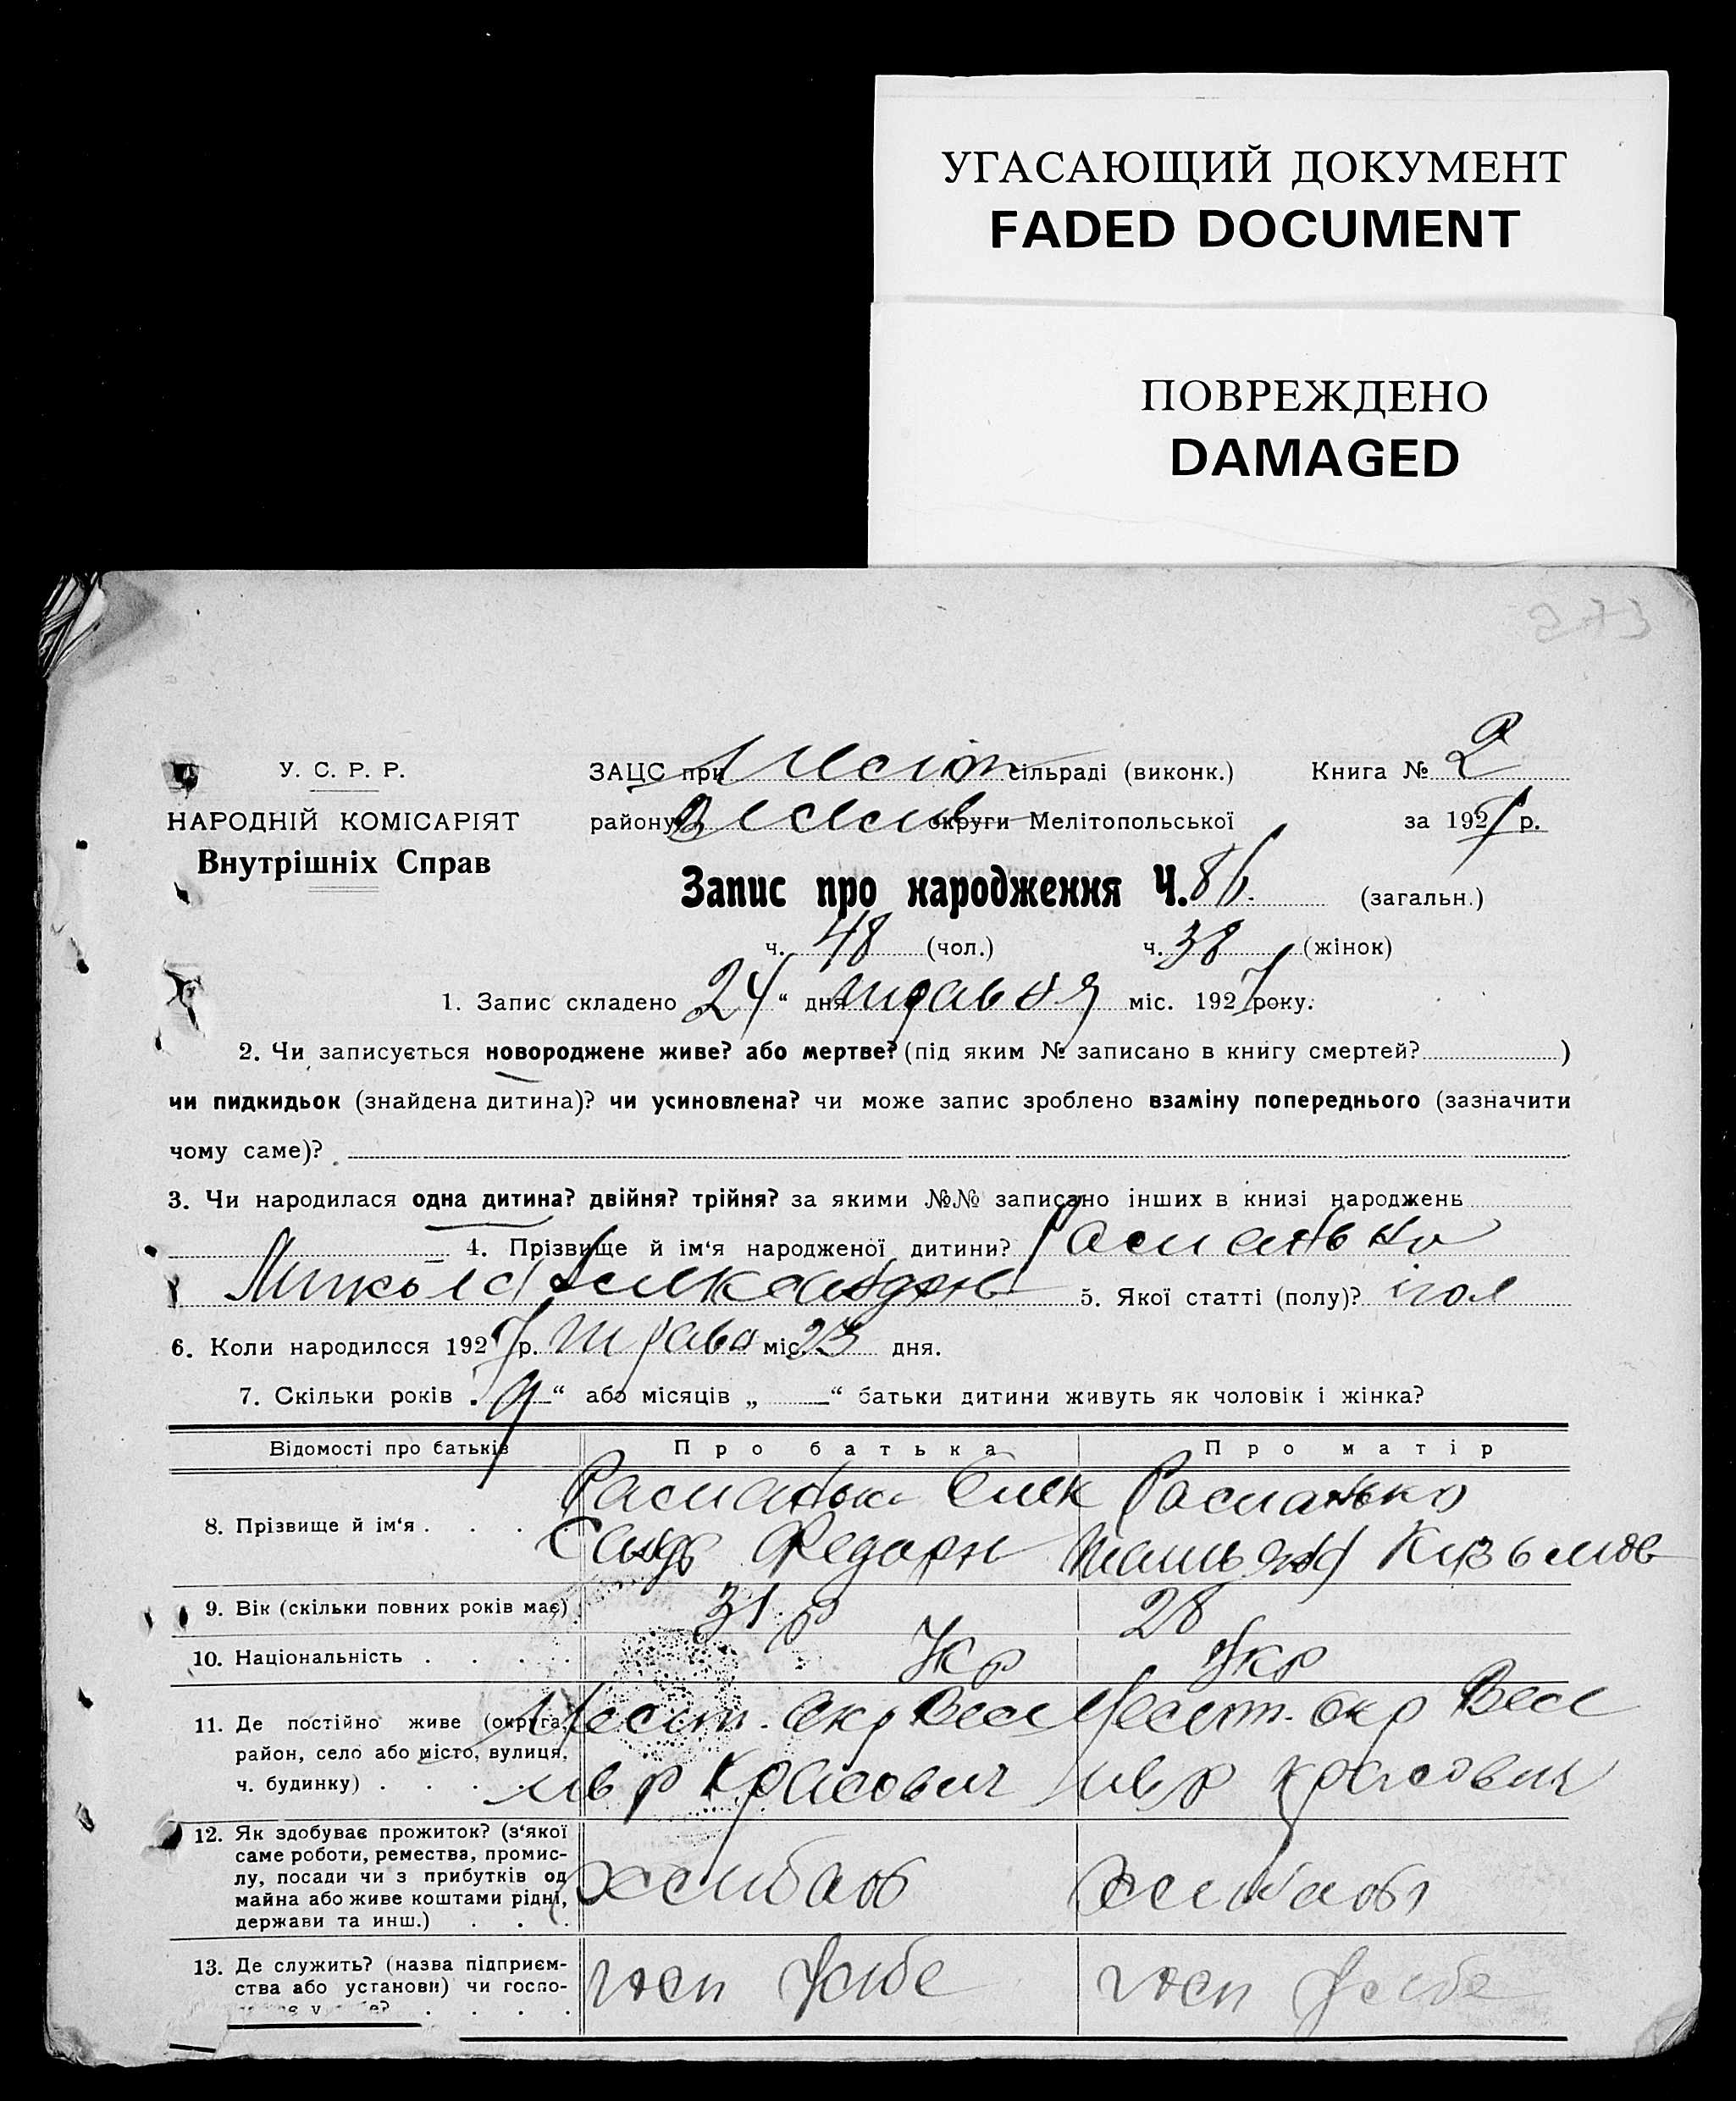 УГАСАЮЩИЙ ДОКУМЕНТ
FADED DOCUMENT
ПОВРЕЖДЕНО
DAMAGED
У. С. Р. Р.
НАРОДНІЙ КОМІСАРІЯТ
Внутрішніх Справ
ЗАЦС при сільраді (виконк.) Книга № 2
району округи Мелітопольської за 1927 р.
Запис про народження Ч. 86. (загальн.)
ч. 48 (чол.) ч. 38 (жінок)
1. Запис складено „24“ дня травня міс. 1927 року.
2. Чи записується новороджене живе? або мертве? (під яким № записано в книгу смертей? )
чи пидкидьок (знайдена дитина)? чи усиновлена? чи може запис зроблено взаміну попереднього (зазначити
чому саме)?
3. Чи народилася одна дитина? двійня? трійня? за якими №№ записано інших в книзі народжень
4. Прізвище й ім‘я народженої дитини?
Микола 5. Якої статті (полу)? чол
6. Коли народилося 1927 р. трав міс. 23 дня.
7. Скільки років „9“ або місяців „ — “ батьки дитини живуть як чоловік і жінка?
Відомості про батьків Про батька Про матір
8. Прізвище й ім‘я
Федорів
9. Вік (скільки повних років має) 31 р 28
10. Національність Укр Укр
11. Де постійно живе (округа, Меліт. окр Весе Меліт. окр Весе
район, село або місто, вулиця,
ч. будинку)
12. Як здобуває прожиток? (з‘якої
саме роботи, ремества, промис-
лу, посади чи з прибутків од
майна або живе коштами рідні, хлібороб хлібороб
держави та инш.)
13. Де служить? (назва підприєм-
ства або установи) чи госпо-
у себе? госп у себе госп у себе